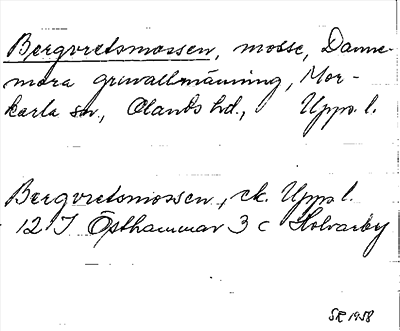 Bergvretsmossen, mosse, Danne-
mora gruvallmänning, Mor-
karla sn., Olands hd., Upps. l.
Bergvretsmossen, ek. Upps l.
12 I Östhammar 3 c Holvarby
SR 1958